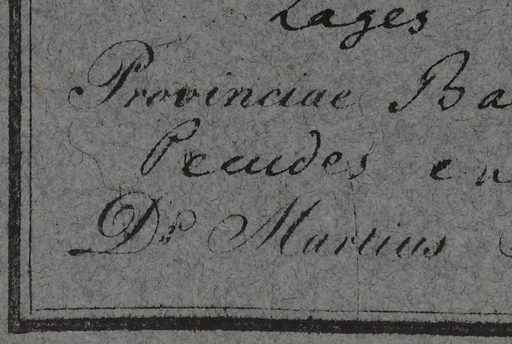 Lages
Provinciae Ba
Pecudes en
Dr. Martius